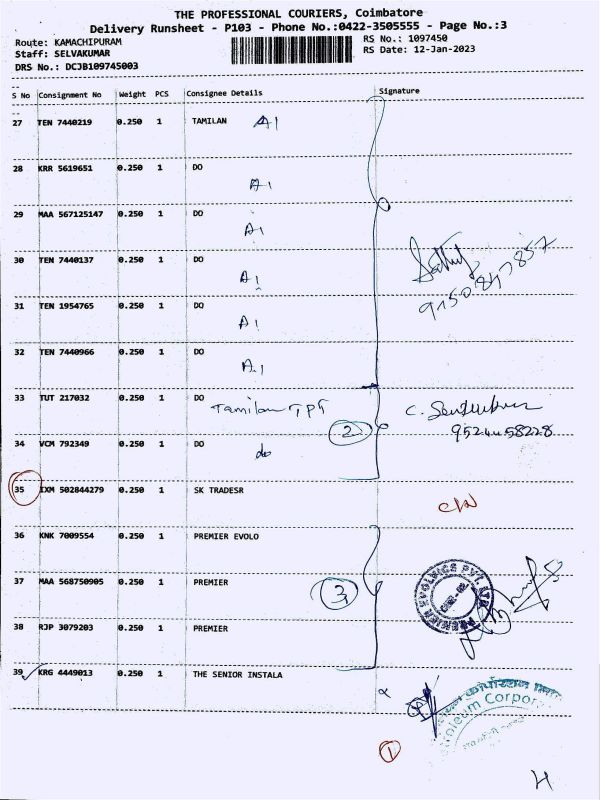 THE PROFESSIONAL COURIERS, Coimbatore
Delivery Runsheet - P103 - Phone No.:0422-3505555 - Page No.:3
Route: KAMACHIPURAM
RS No.: 1097450
Staff: SELVAKUMAR
RS Date: 12-Jan-2023
DRS No.: DCJB109745003
S No Consignment No Weight PCS Consignee Details Signature
27 TEN 7440219 0.250 1 TAMILAN A1
28 KRR 5619651 0.250 1 DO
A1
29 MAA 567125147 0.250 1 DO
A1
30 TEN 7440137 0.250 1 DO
A1
31 TEN 1954765 0.250 1 DO
A1
32 TEN 7440966 0.250 1 DO
A1
33 TUT 217032 0.250 1 DO
Tamilan
2
34 VCM 792349 0.250 1 DO
do
35 IXM 502844279 0.250 1 SK TRADESR
36 KNK 7009554 0.250 1 PREMIER EVOLO
37 MAA 568750905 0.250 1 PREMIER
3
PREMIER EVOLVICS PVT. LTD
38 RJP 3079203 0.250 1 PREMIER
39 KRG 4449013 0.250 1 THE SENIOR INSTALA
1